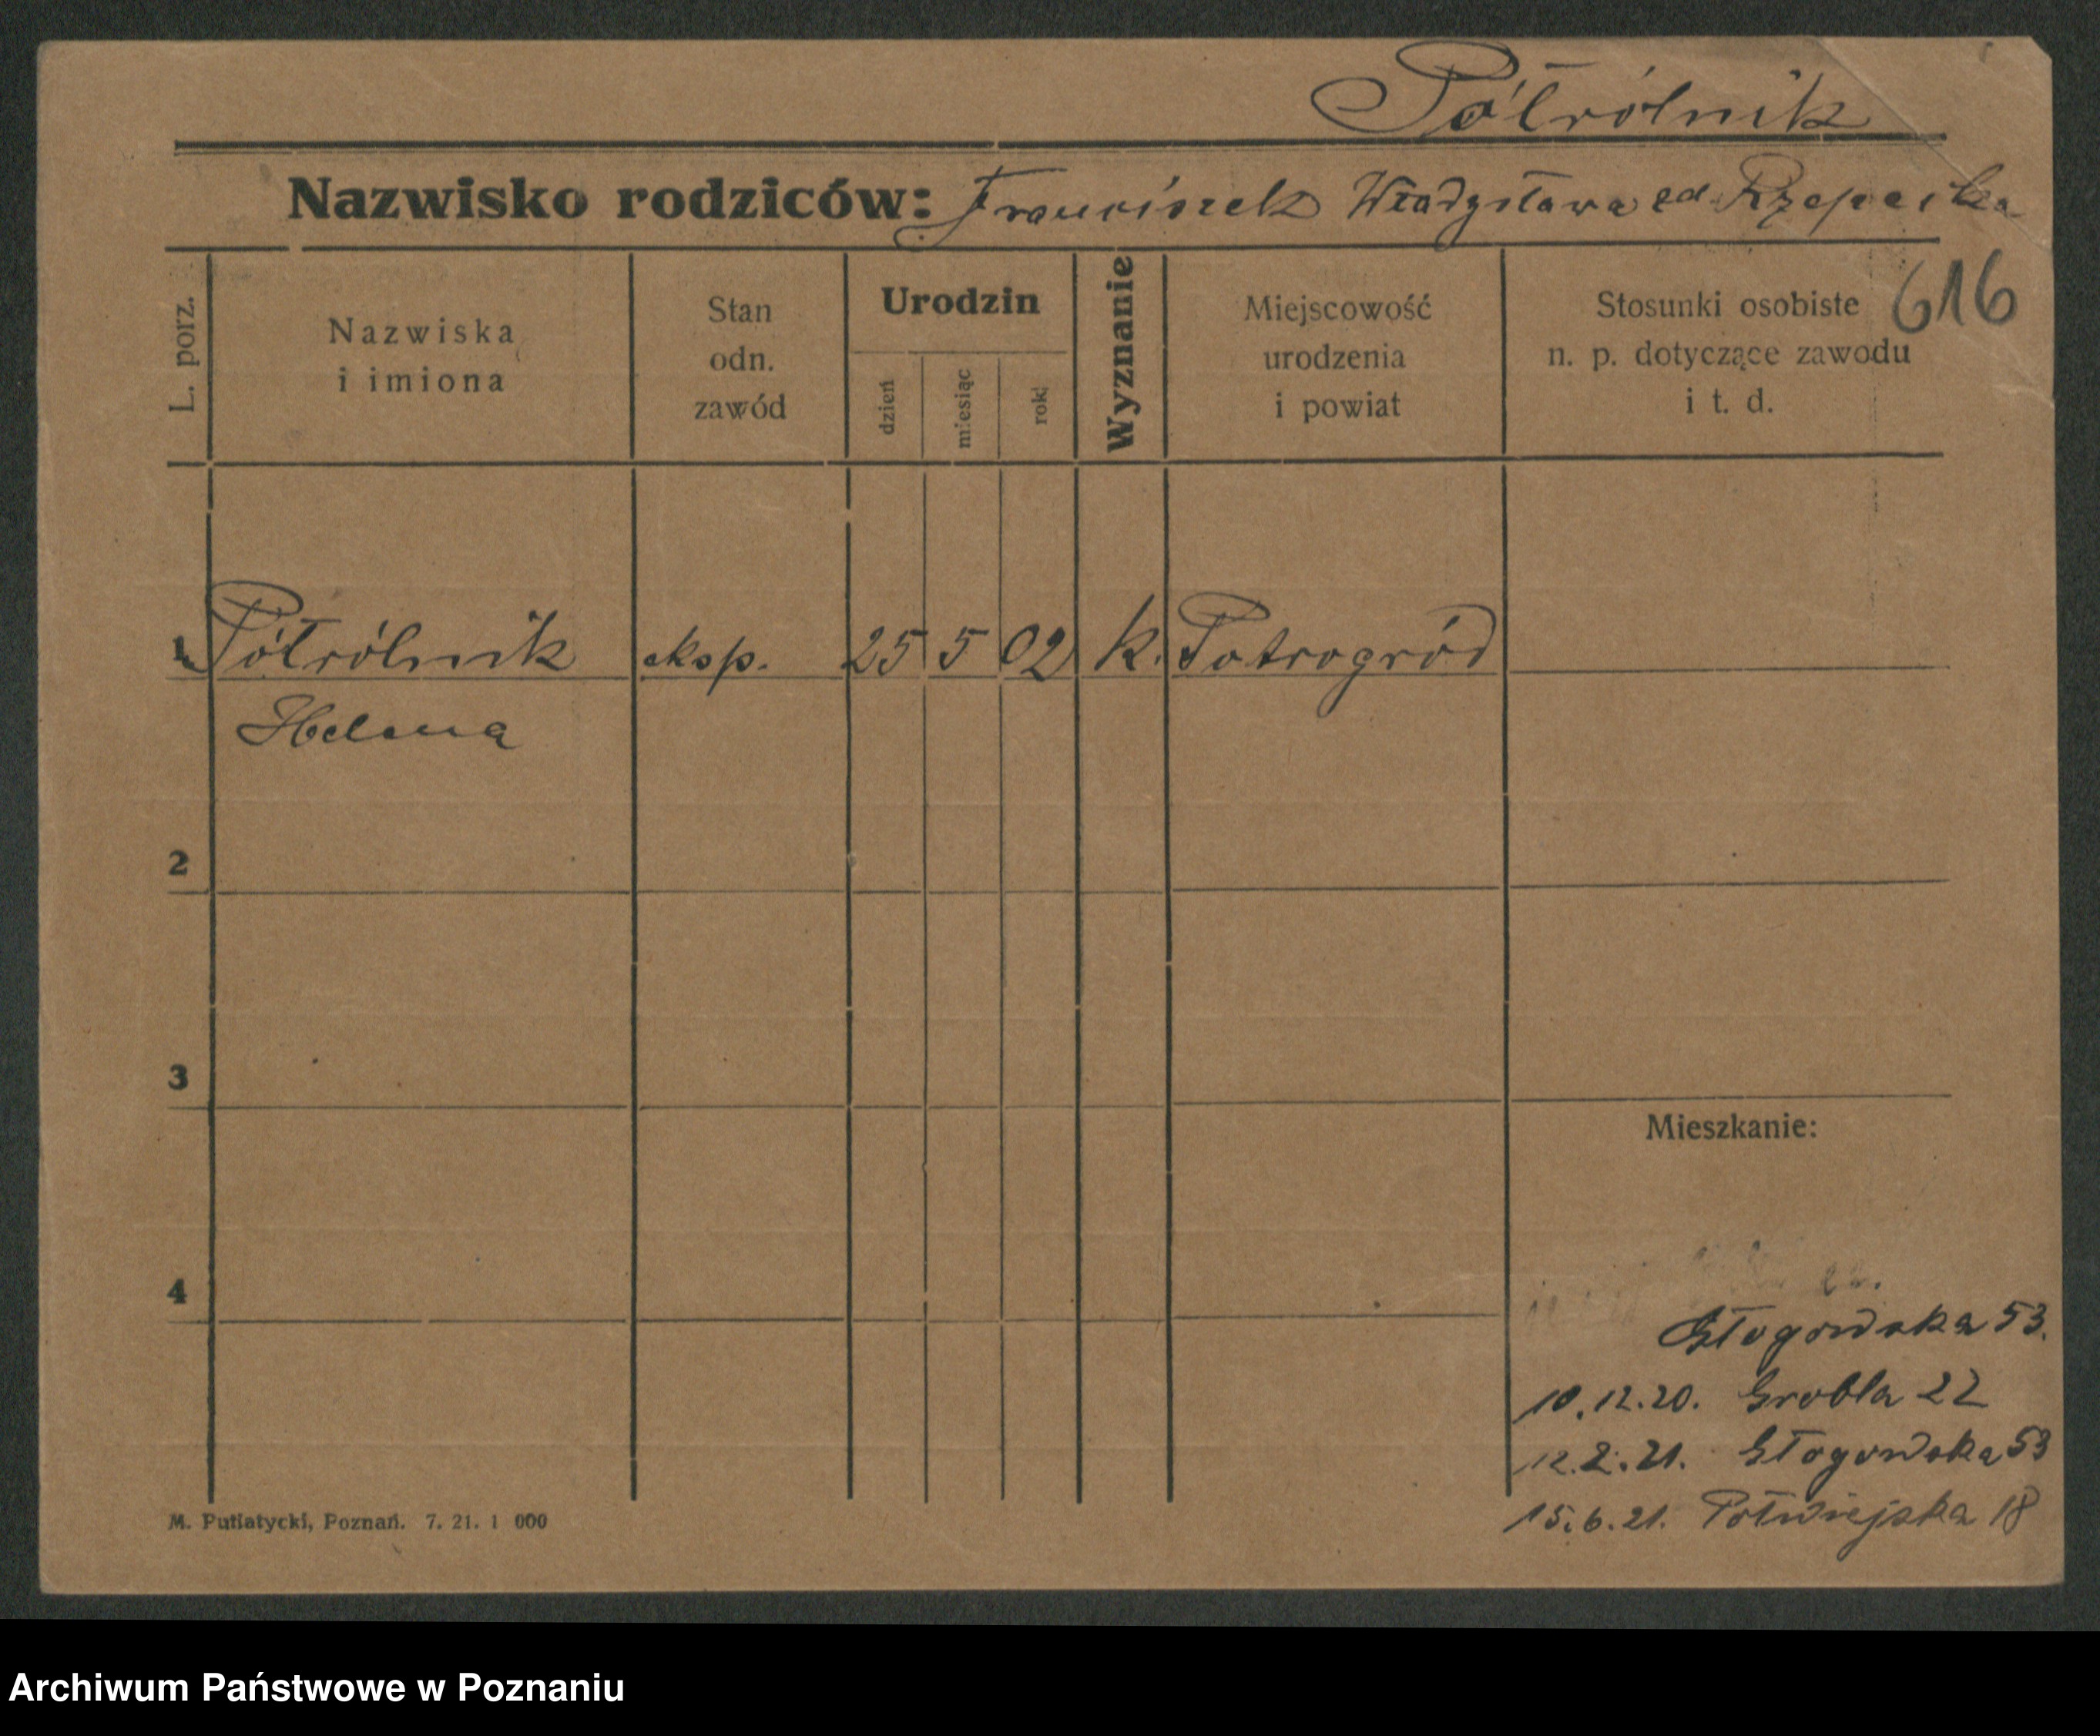 Półrólnik
Nazwisko rodziców: Franciszek Władysława zd. Rzepecka
616
L. porz.
Nazwiska
i imiona
Stan
odn.
zawód
Urodzin
dzień
miesiąc
rok
Wyznanie
Miejscowość
urodzenia
i powiat
Stosunki osobiste
n. p. dotyczące zawodu
i t. d.
1 Półrólnik eksp. 25 5 02 k. Potrogród
Helena
2
3
Mieszkanie:
4
Głogowska 53.
10.12.20. Grobla 22
12.2.21. Głogowska 53
15.6.21. Półwiejska 18
M. Putiatycki, Poznań. 7. 21. 1 000
Archiwum Państwowe w Poznaniu